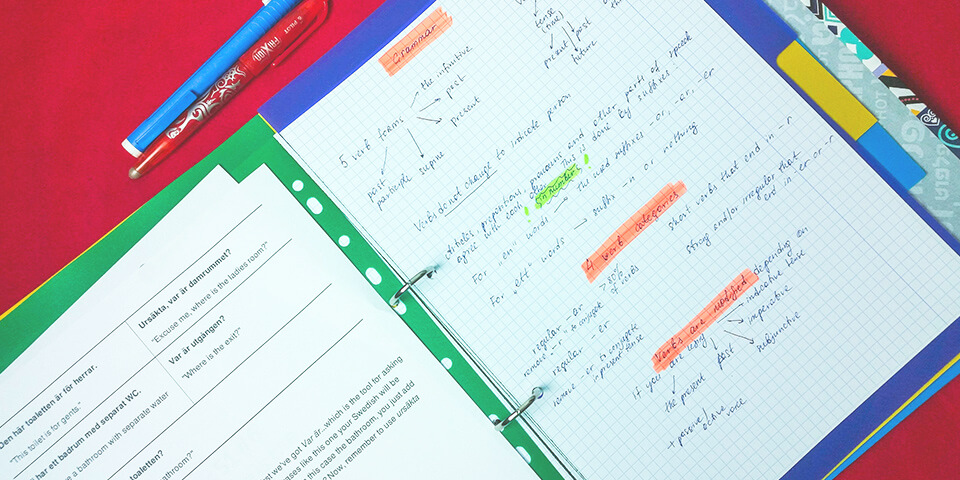 PILOT
FRIXION
Grammar
tense
(time)
present
past
future
5 verb forms
the infinitive
past
present
past
participle
supine
Verbs do not change to indicate person
articles, prepositions, pronouns and other parts of speech
agree with each other. This is done by suffixes.
! in number !
For "en" words → the used suffixes -or, -ar, -er
For "ett" words → suffix -n or nothing
4 verb categories
regular -ar
>80%
of verbs
remove -r to conjugate
regular - er
remove -er to conjugate
in present tense
short verbs that end in -r
strong and/or irregular that
end in -er or -r
Verbs are modified depending on
if you are using
indicative tense
imperative
subjunctive
past
the present
+ passive
active
voice
Ursäkta, var är damrummet?
"Excuse me, where is the ladies room?"
Var är utgången?
"Where is the exit?"
Den här toaletten är för herrar.
"This toilet is for gents."
har ett badrum med separat WC.
e a bathroom with separate water
toaletten?
athroom?"
st we've got Var är...which is the tool for asking
ases like this one your Swedish will be
this case the bathroom, you just add
? Now, remember to use ursäkta